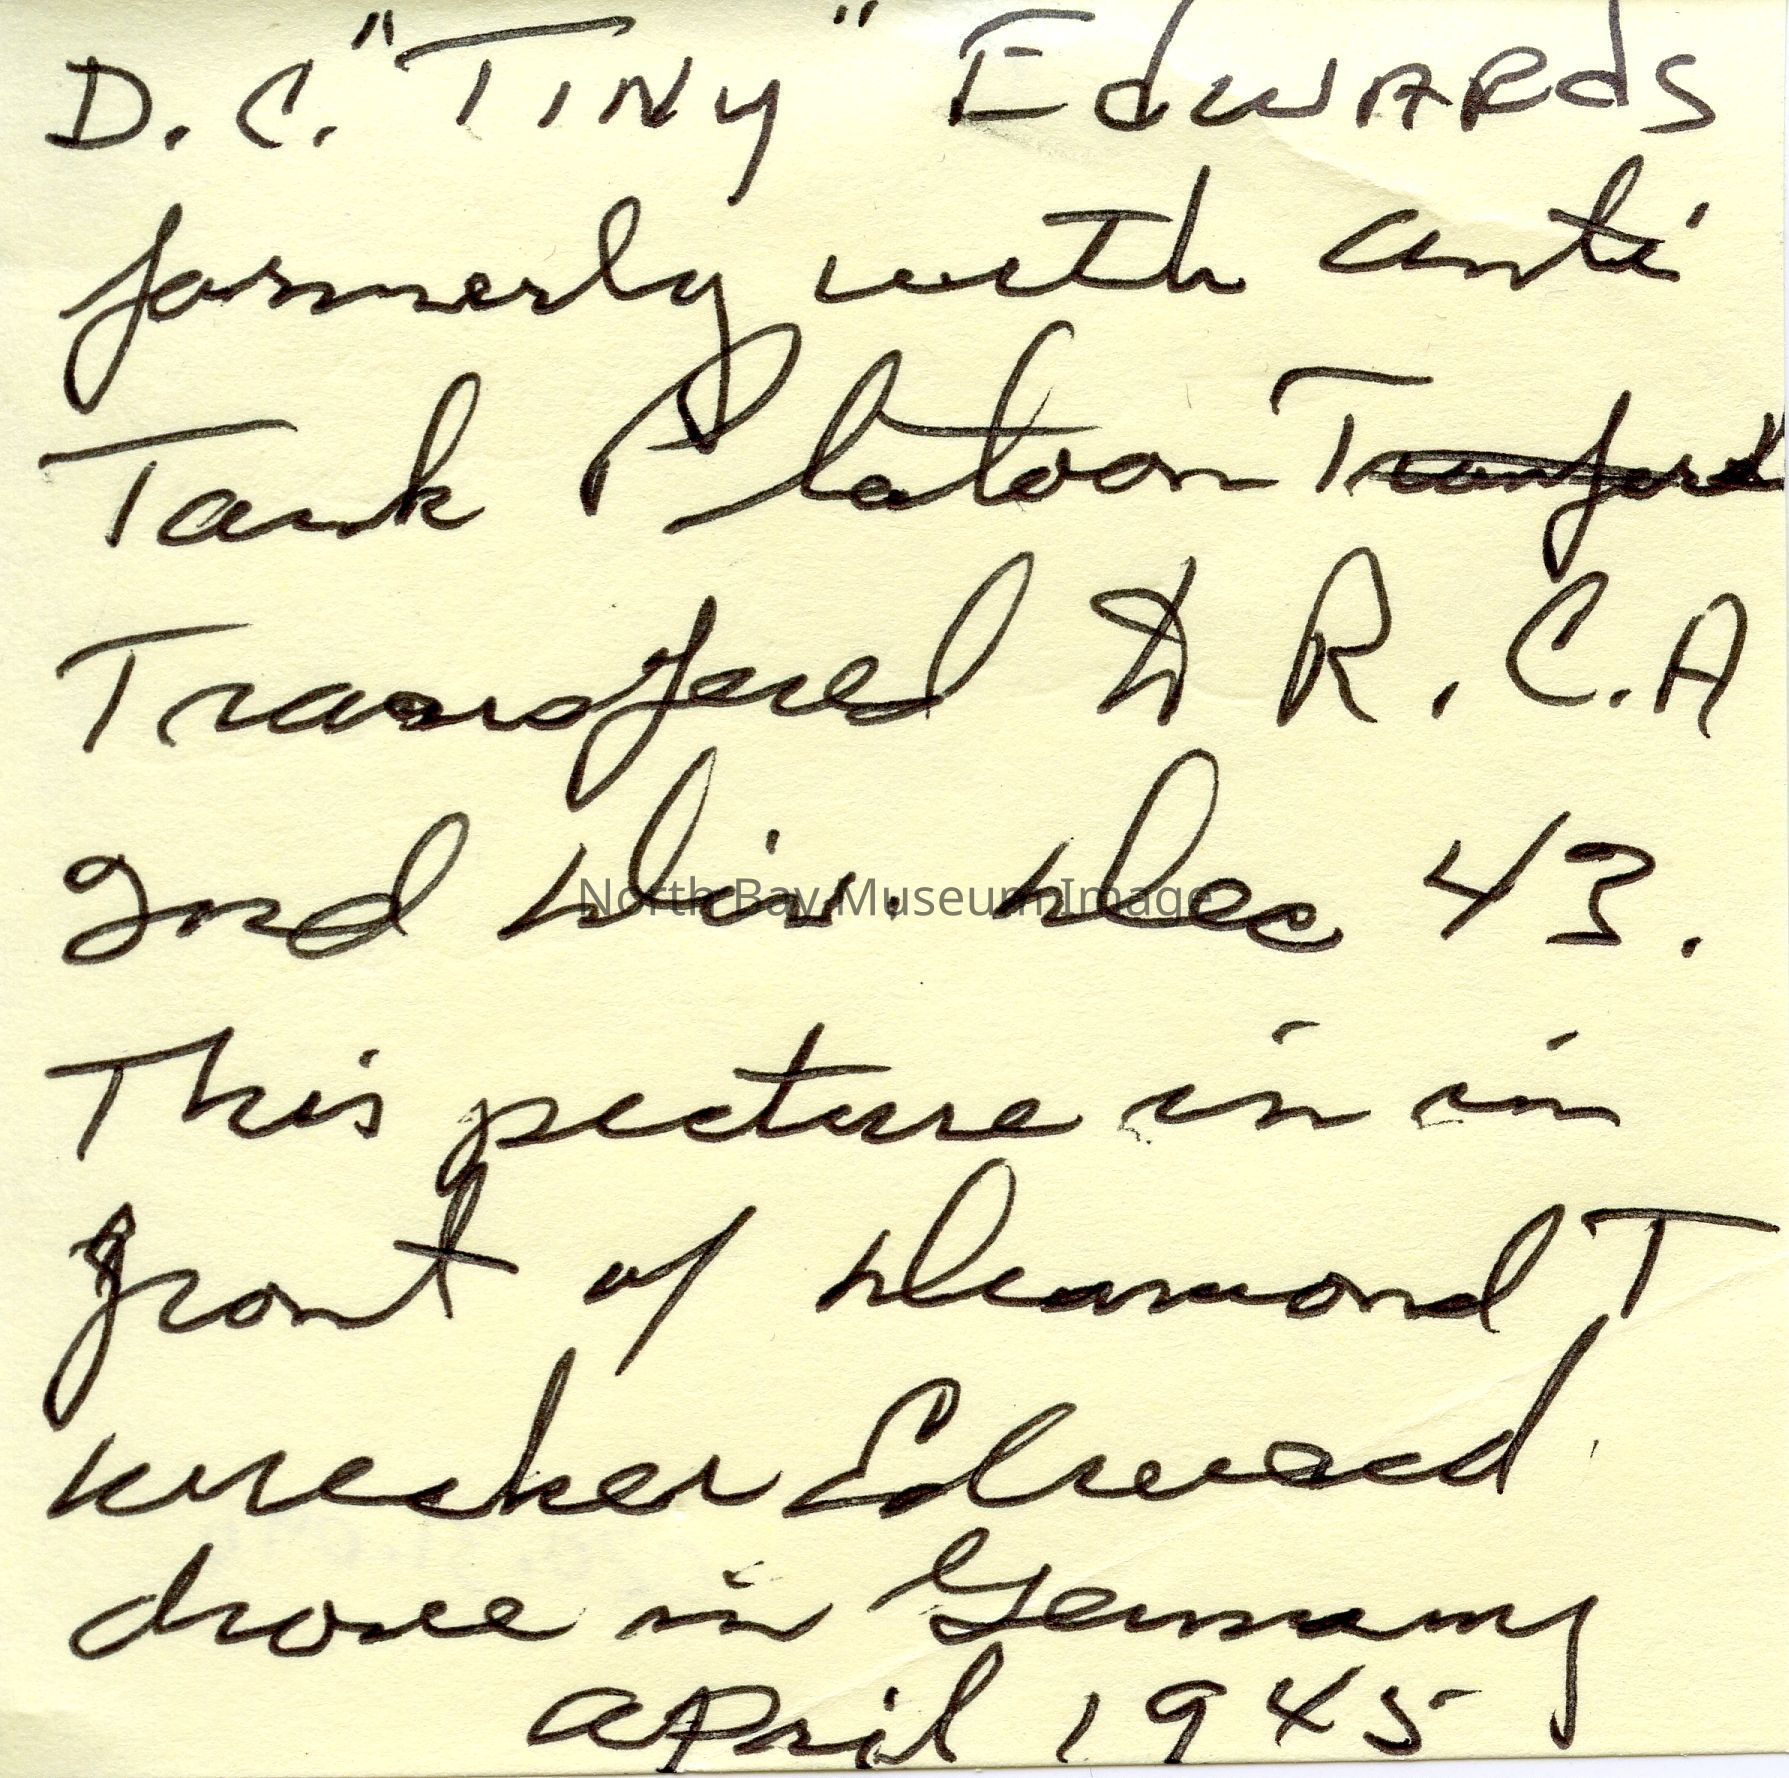 D.C. "TINY" EdwARds
formerly with anti
Tank Platoon
Transfered to R.C.A
2nd Div. Dec 43.
North Bay Museum Image
This picture in in
front of Diamond T
wrecker Edward
drove in Germany
April 1945